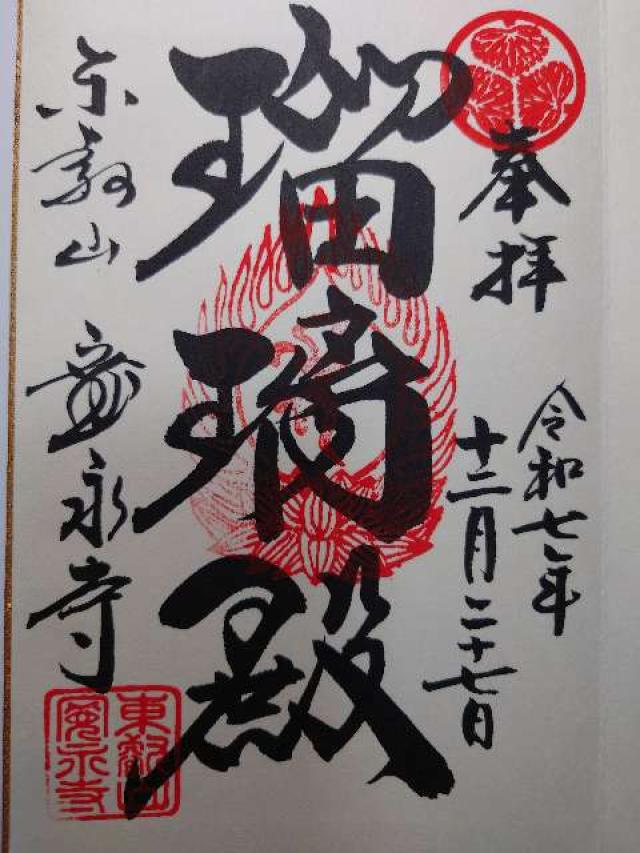 奉拝
令和七年
十二月二十七日
瑠璃殿
東叡山 寛永寺
東叡山
寛永寺